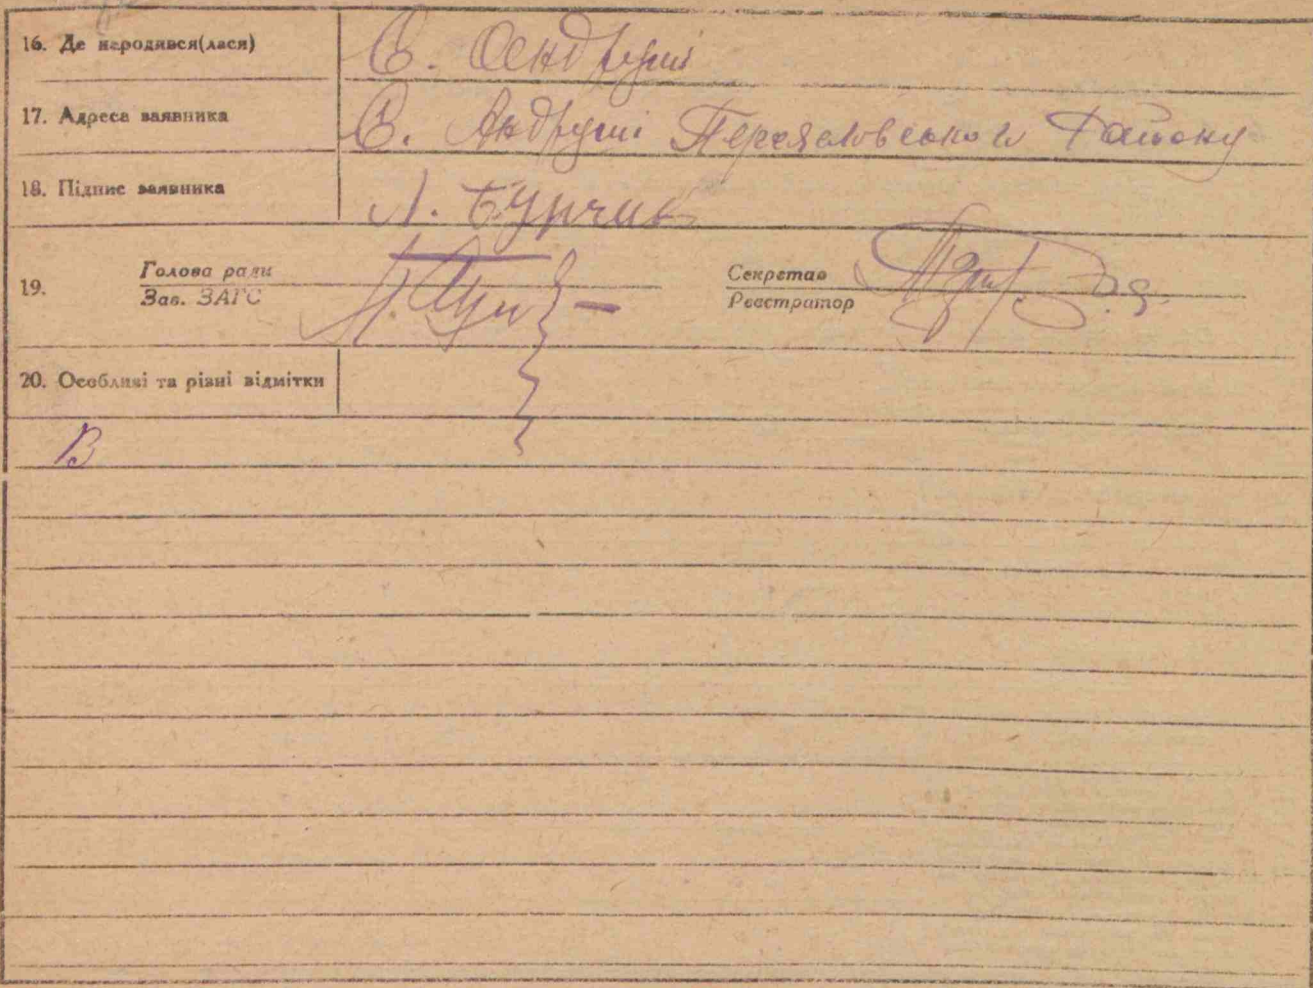 16. Де народився(лася) С. Андруші
17. Адреса заявника С. Андруші Переяславського Району
18. Підпис заявника Л. Бурчик
19. Голова ради Секретар
Зав. ЗАГС Реєстратор
20. Особливі та різні відмітки
В